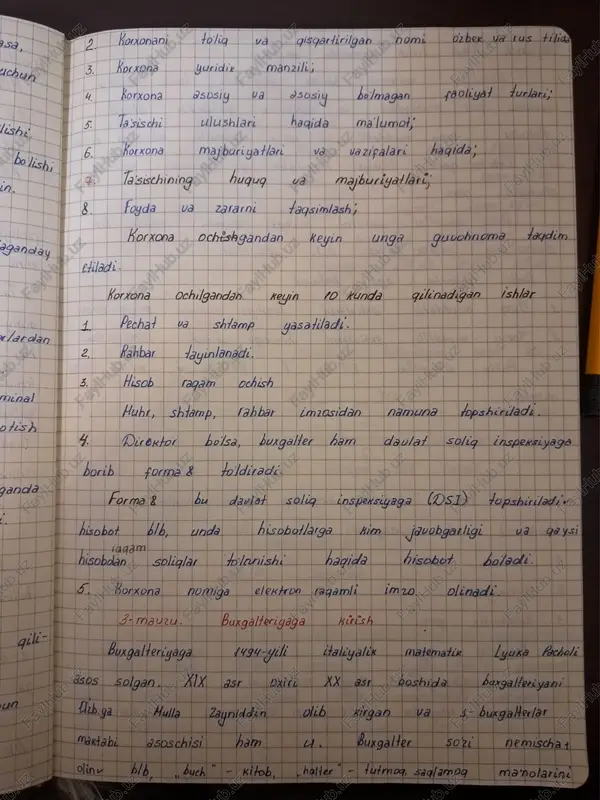 2. Korxonani to'liq va qisqartirilgan nomi o'zbek va rus tilida
3. Korxona yuridik manzili;
4. Korxona asosiy va asosiy bo'lmagan faoliyat turlari;
5. Ta'sischi ulushlari haqida ma'lumot;
6. Korxona majburiyatlari va vazifalari haqida;
7. Ta'sischining huquq va majburiyatlari;
8. Foyda va zararni taqsimlash;
Korxona ochishgandan keyin unga guvohnoma taqdim
etiladi.
Korxona ochilgandan keyin 10 kunda qilinadigan ishlar
1. Pechat va shtamp yasatiladi.
2. Rahbar tayinlanadi.
3. Hisob raqam ochish
Muhr, shtamp, rahbar imzosidan namuna topshiriladi.
4. Direktor bo'lsa, buxgalter ham davlat soliq inspeksiyaga
borib forma 8 to'ldiradi.
Forma 8 bu davlat soliq inspeksiyaga (DSI) topshiriladi
hisobot blb, unda hisobotlarga kim javobgarligi va qaysi
raqam
hisobdan soliqlar to'lanishi haqida hisobot boladi.
5. Korxona nomiga elektron raqamli imzo olinadi.
3-mavzu. Buxgalteriyaga kirish
Buxgalteriyaga 1494-yili italiyalik matematik Lyuka Pacholi
asos solgan. XIX asr oxiri XX asr boshida buxgalteriyani
O'zb.ga Mulla Zayniddin olib kirgan va buxgalterlar
maktabi asoschisi ham u. Buxgalter so'zi nemischa
olin blb, "buch" - kitob, "halter" - tutmoq, saqlamoq ma'nolarini
asa,
uchun
lishi
bolishi
in.
aganday
lardan
minal
otish
ganda
qili-
un
FaylHub.uz